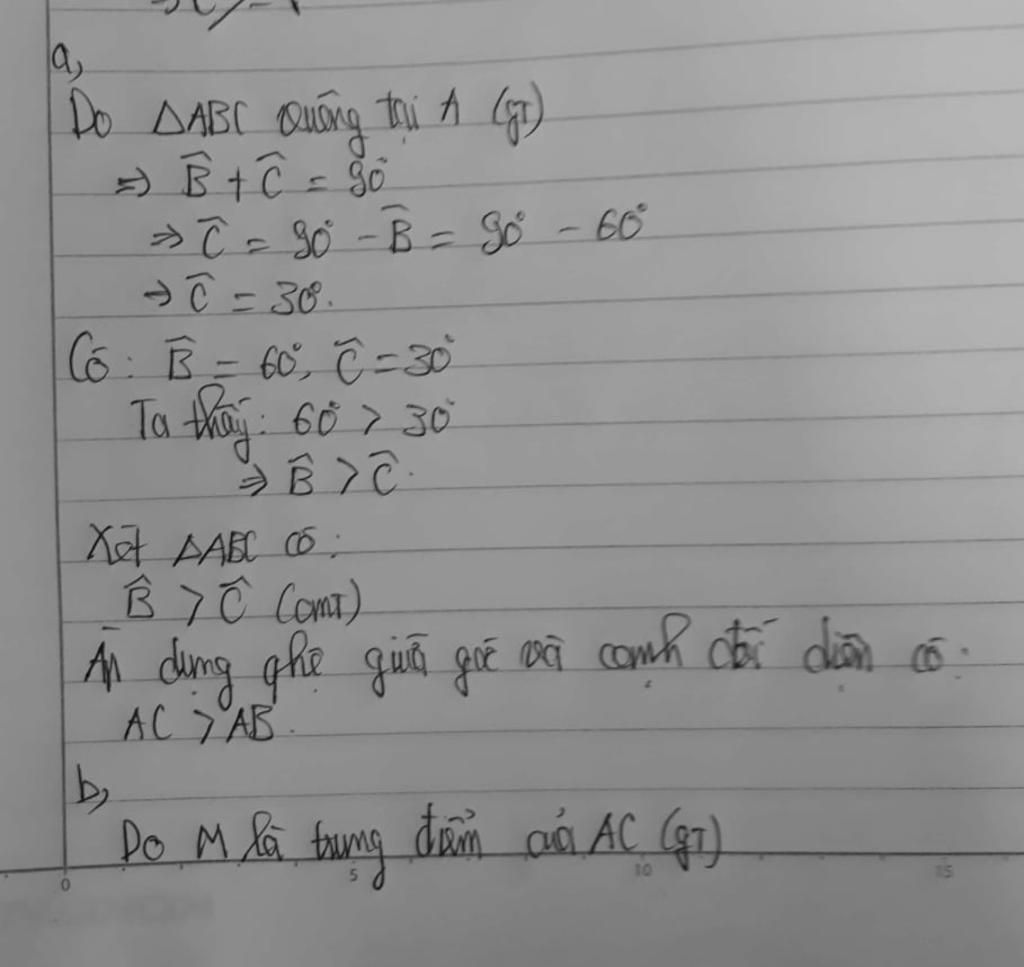 a,
Do ΔABC vuông tại A (gt)
⇒ B̂ + Ĉ = 90°
⇒ Ĉ = 90° - B̂ = 90° - 60°
→ Ĉ = 30°.
Có: B̂ = 60°, Ĉ = 30°
Ta thấy: 60° > 30°
⇒ B̂ > Ĉ.
Xét ΔABC có:
B̂ > Ĉ (cmt)
dụng qhệ giữa góc và cạnh đối diện có:
AC > AB.
b,
Do M là trung điểm của AC (gt)
0 5 10 15